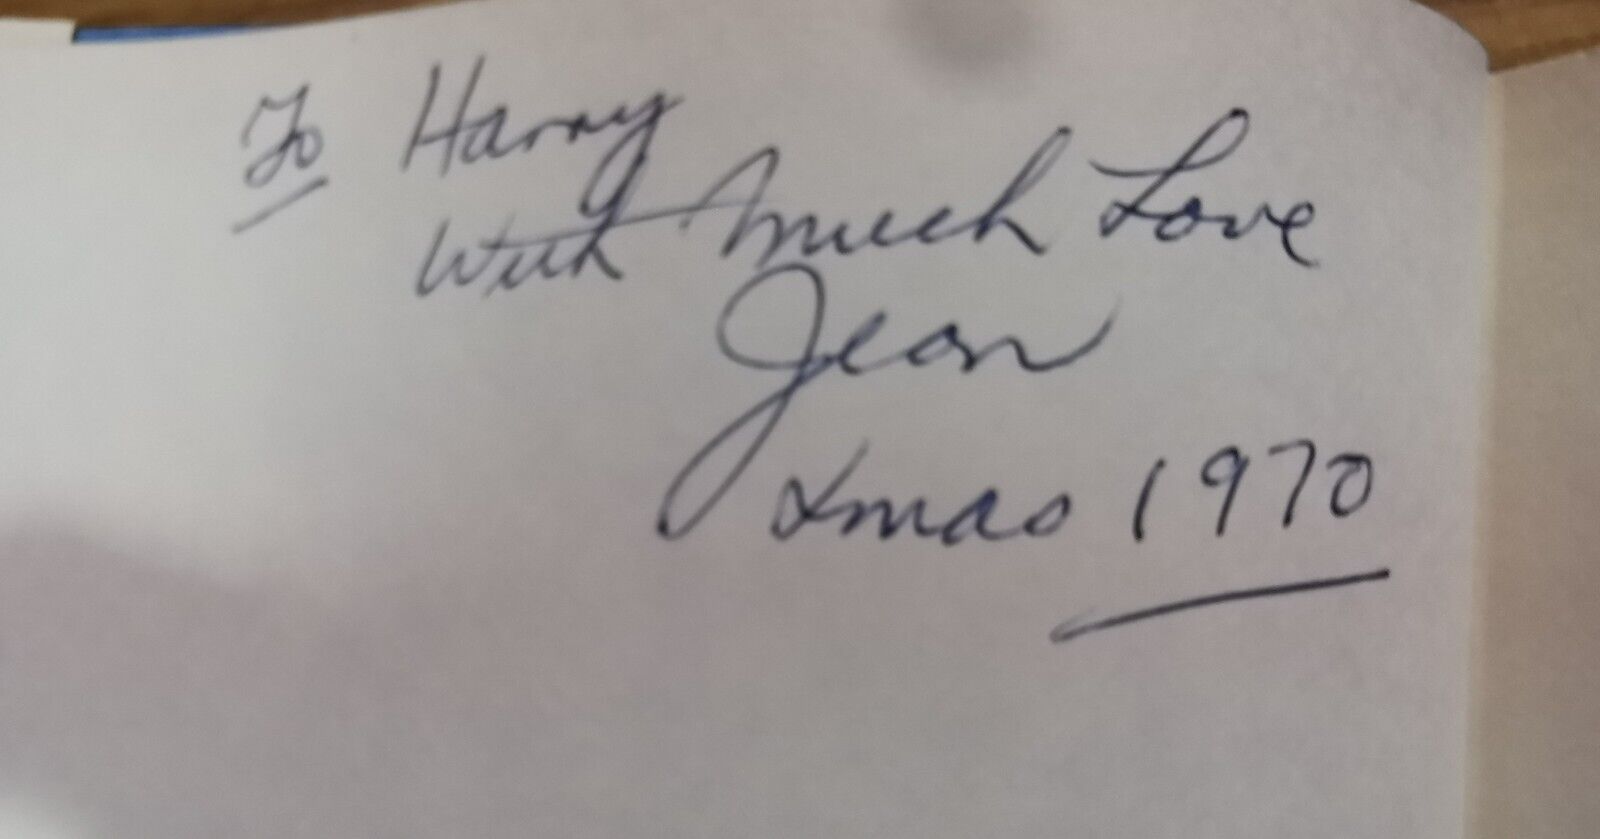 To Harry
With Much Love
Jean
Xmas 1970